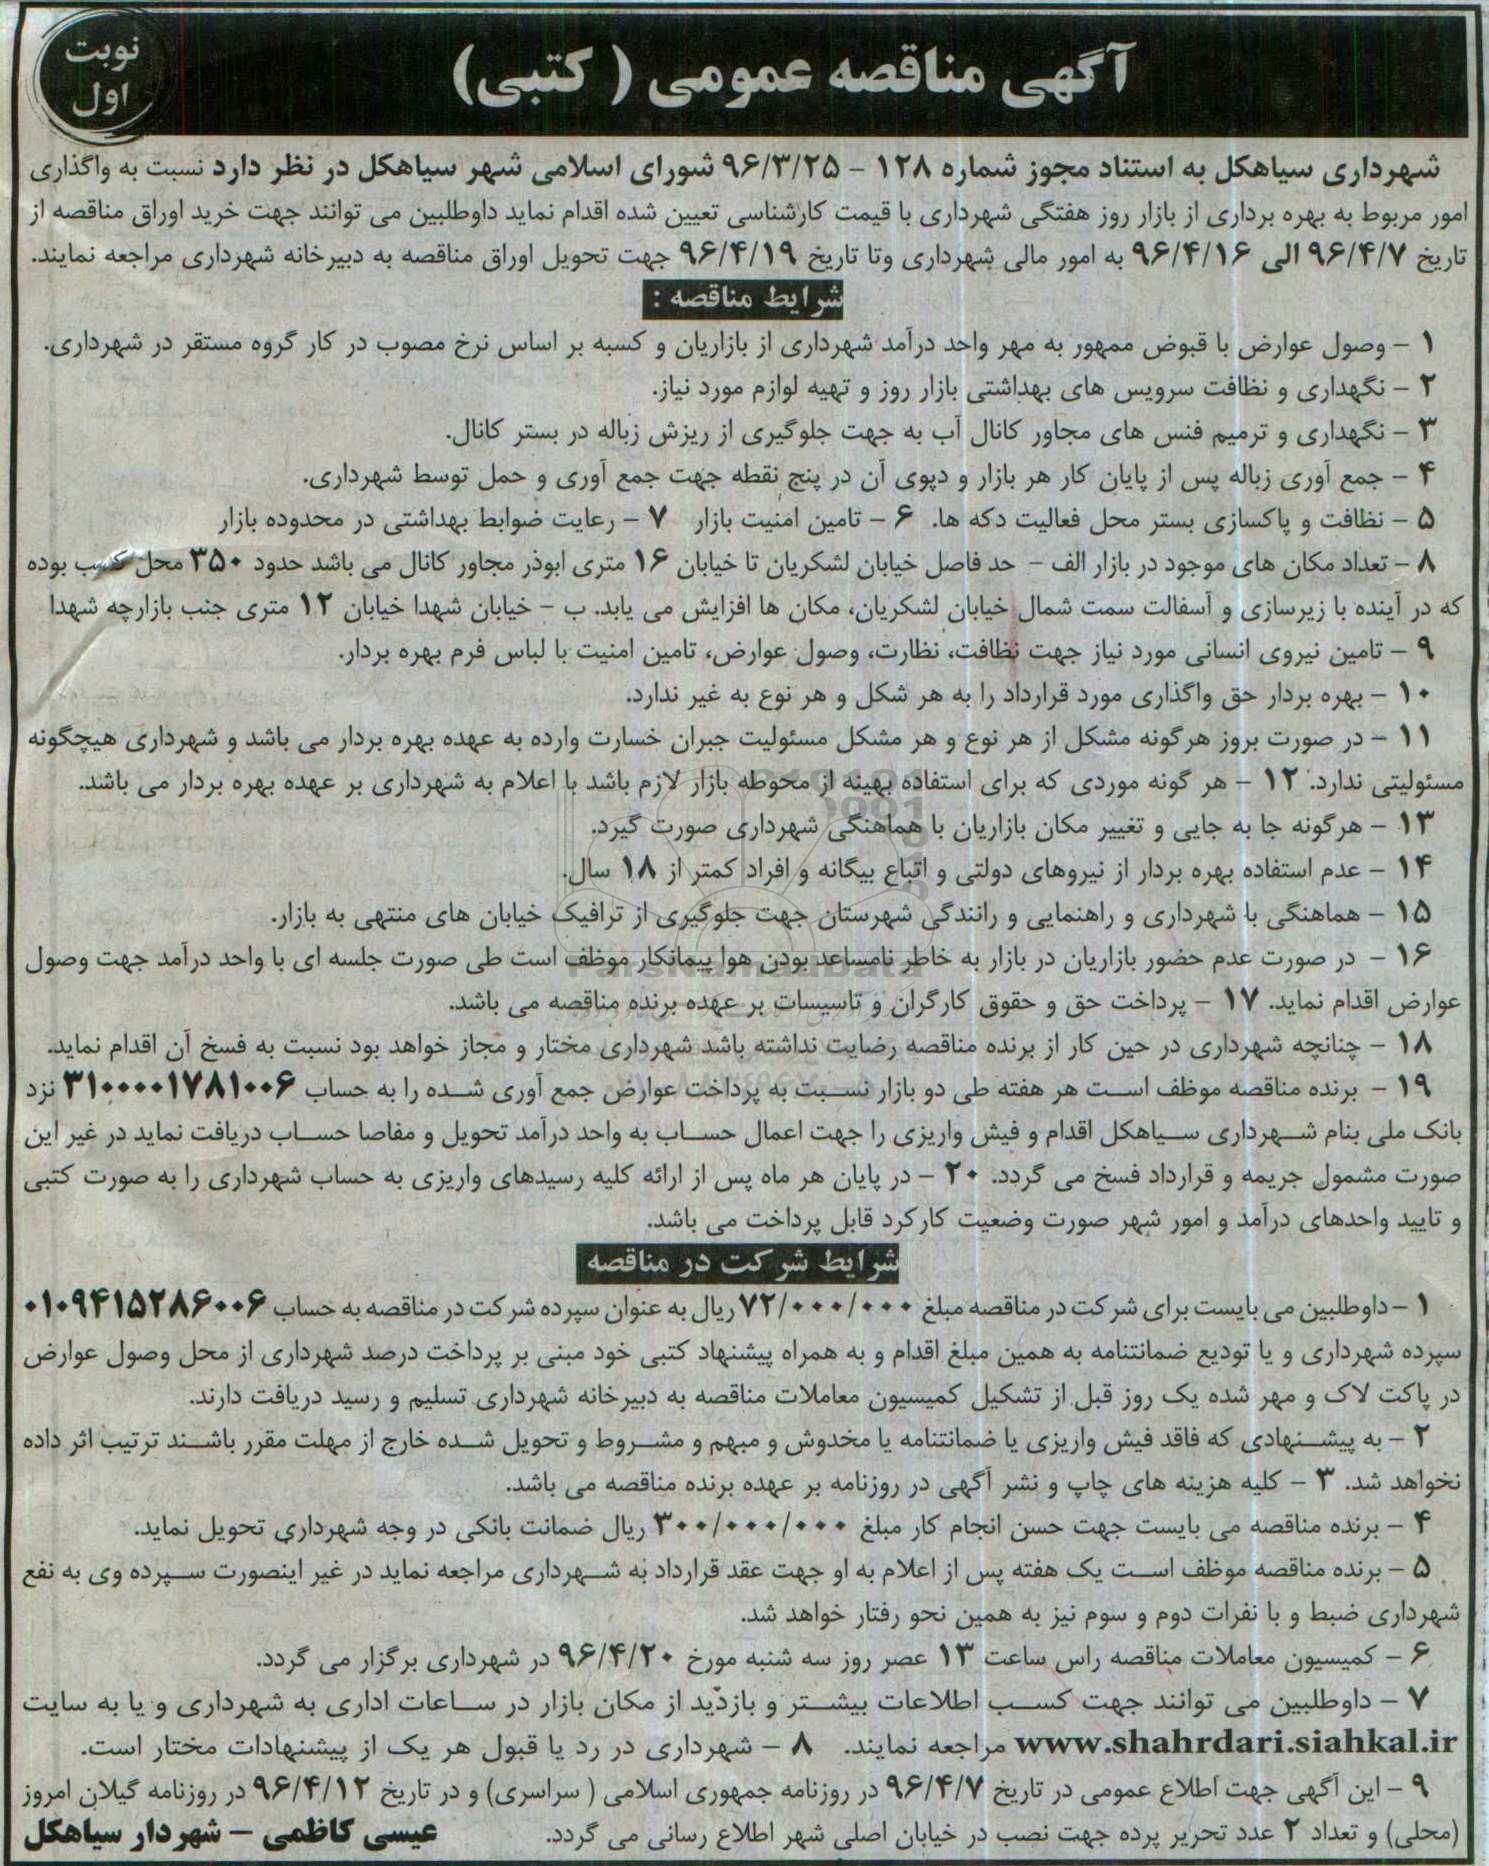 نوبت
اول
آگهی مناقصه عمومی ( کتبی)
شهرداری سیاهکل به استناد مجوز شماره ۱۲۸ - ۹۶/۳/۲۵ شورای اسلامی شهر سیاهکل در نظر دارد نسبت به واگذاری
امور مربوط به بهره برداری از بازار روز هفتگی شهرداری با قیمت کارشناسی تعیین شده اقدام نماید داوطلبین می توانند جهت خرید اوراق مناقصه از
تاریخ ۹۶/۴/۷ الی ۹۶/۴/۱۶ به امور مالی شهرداری وتا تاریخ ۹۶/۴/۱۹ جهت تحویل اوراق مناقصه به دبیرخانه شهرداری مراجعه نمایند.
شرایط مناقصه :
۱ - وصول عوارض با قبوض ممهور به مهر واحد درآمد شهرداری از بازاریان و کسبه بر اساس نرخ مصوب در کار گروه مستقر در شهرداری.
۲ - نگهداری و نظافت سرویس های بهداشتی بازار روز و تهیه لوازم مورد نیاز.
۳ - نگهداری و ترمیم فنس های مجاور کانال آب به جهت جلوگیری از ریزش زباله در بستر کانال.
۴ - جمع آوری زباله پس از پایان کار هر بازار و دپوی آن در پنج نقطه جهت جمع آوری و حمل توسط شهرداری.
۵ - نظافت و پاکسازی بستر محل فعالیت دکه ها. ۶ - تامین امنیت بازار ۷ - رعایت ضوابط بهداشتی در محدوده بازار
۸ - تعداد مکان های موجود در بازار الف - حد فاصل خیابان لشکریان تا خیابان ۱۶ متری ابوذر مجاور کانال می باشد حدود ۳۵۰ محل کسب بوده
که در آینده با زیرسازی و آسفالت سمت شمال خیابان لشکریان، مکان ها افزایش می یابد. ب - خیابان شهدا خیابان ۱۲ متری جنب بازارچه شهدا
۹ - تامین نیروی انسانی مورد نیاز جهت نظافت، نظارت، وصول عوارض، تامین امنیت با لباس فرم بهره بردار.
۱۰ - بهره بردار حق واگذاری مورد قرارداد را به هر شکل و هر نوع به غیر ندارد.
۱۱ - در صورت بروز هرگونه مشکل از هر نوع و هر مشکل مسئولیت جبران خسارت وارده به عهده بهره بردار می باشد و شهرداری هیچگونه
مسئولیتی ندارد. ۱۲ - هر گونه موردی که برای استفاده بهینه از محوطه بازار لازم باشد با اعلام به شهرداری بر عهده بهره بردار می باشد.
۱۳ - هرگونه جا به جایی و تغییر مکان بازاریان با هماهنگی شهرداری صورت گیرد.
۱۴ - عدم استفاده بهره بردار از نیروهای دولتی و اتباع بیگانه و افراد کمتر از ۱۸ سال.
۱۵ - هماهنگی با شهرداری و راهنمایی و رانندگی شهرستان جهت جلوگیری از ترافیک خیابان های منتهی به بازار.
۱۶ - در صورت عدم حضور بازاریان در بازار به خاطر نامساعد بودن هوا پیمانکار موظف است طی صورت جلسه ای با واحد درآمد جهت وصول
عوارض اقدام نماید. ۱۷ - پرداخت حق و حقوق کارگران و تاسیسات بر عهده برنده مناقصه می باشد.
۱۸ - چنانچه شهرداری در حین کار از برنده مناقصه رضایت نداشته باشد شهرداری مختار و مجاز خواهد بود نسبت به فسخ آن اقدام نماید.
۱۹ - برنده مناقصه موظف است هر هفته طی دو بازار نسبت به پرداخت عوارض جمع آوری شده را به حساب ۳۱۰۰۰۰۱۷۸۱۰۰۶ نزد
بانک ملی بنام شهرداری سیاهکل اقدام و فیش واریزی را جهت اعمال حساب به واحد درآمد تحویل و مفاصا حساب دریافت نماید در غیر این
صورت مشمول جریمه و قرارداد فسخ می گردد. ۲۰ - در پایان هر ماه پس از ارائه کلیه رسیدهای واریزی به حساب شهرداری را به صورت کتبی
و تایید واحدهای درآمد و امور شهر صورت وضعیت کارکرد قابل پرداخت می باشد.
شرایط شرکت در مناقصه
۱ - داوطلبین می بایست برای شرکت در مناقصه مبلغ ۷۲/۰۰۰/۰۰۰ ریال به عنوان سپرده شرکت در مناقصه به حساب ۰۱۰۹۴۱۵۲۸۶۰۰۶
سپرده شهرداری و یا تودیع ضمانتنامه به همین مبلغ اقدام و به همراه پیشنهاد کتبی خود مبنی بر پرداخت درصد شهرداری از محل وصول عوارض
در پاکت لاک و مهر شده یک روز قبل از تشکیل کمیسیون معاملات مناقصه به دبیرخانه شهرداری تسلیم و رسید دریافت دارند.
۲ - به پیشنهادی که فاقد فیش واریزی یا ضمانتنامه یا مخدوش و مبهم و مشروط و تحویل شده خارج از مهلت مقرر باشند ترتیب اثر داده
نخواهد شد. ۳ - کلیه هزینه های چاپ و نشر آگهی در روزنامه بر عهده برنده مناقصه می باشد.
۴ - برنده مناقصه می بایست جهت حسن انجام کار مبلغ ۳۰۰/۰۰۰/۰۰۰ ریال ضمانت بانکی در وجه شهرداری تحویل نماید.
۵ - برنده مناقصه موظف است یک هفته پس از اعلام به او جهت عقد قرارداد به شهرداری مراجعه نماید در غیر اینصورت سپرده وی به نفع
شهرداری ضبط و با نفرات دوم و سوم نیز به همین نحو رفتار خواهد شد.
۶ - کمیسیون معاملات مناقصه راس ساعت ۱۳ عصر روز سه شنبه مورخ ۹۶/۴/۲۰ در شهرداری برگزار می گردد.
۷ - داوطلبین می توانند جهت کسب اطلاعات بیشتر و بازدید از مکان بازار در ساعات اداری به شهرداری و یا به سایت
www.shahrdari.siahkal.ir مراجعه نمایند. ۸ - شهرداری در رد یا قبول هر یک از پیشنهادات مختار است.
۹ - این آگهی جهت اطلاع عمومی در تاریخ ۹۶/۴/۷ در روزنامه جمهوری اسلامی ( سراسری) و در تاریخ ۹۶/۴/۱۲ در روزنامه گیلان امروز
(محلی) و تعداد ۲ عدد تحریر پرده جهت نصب در خیابان اصلی شهر اطلاع رسانی می گردد. عیسی کاظمی - شهردار سیاهکل